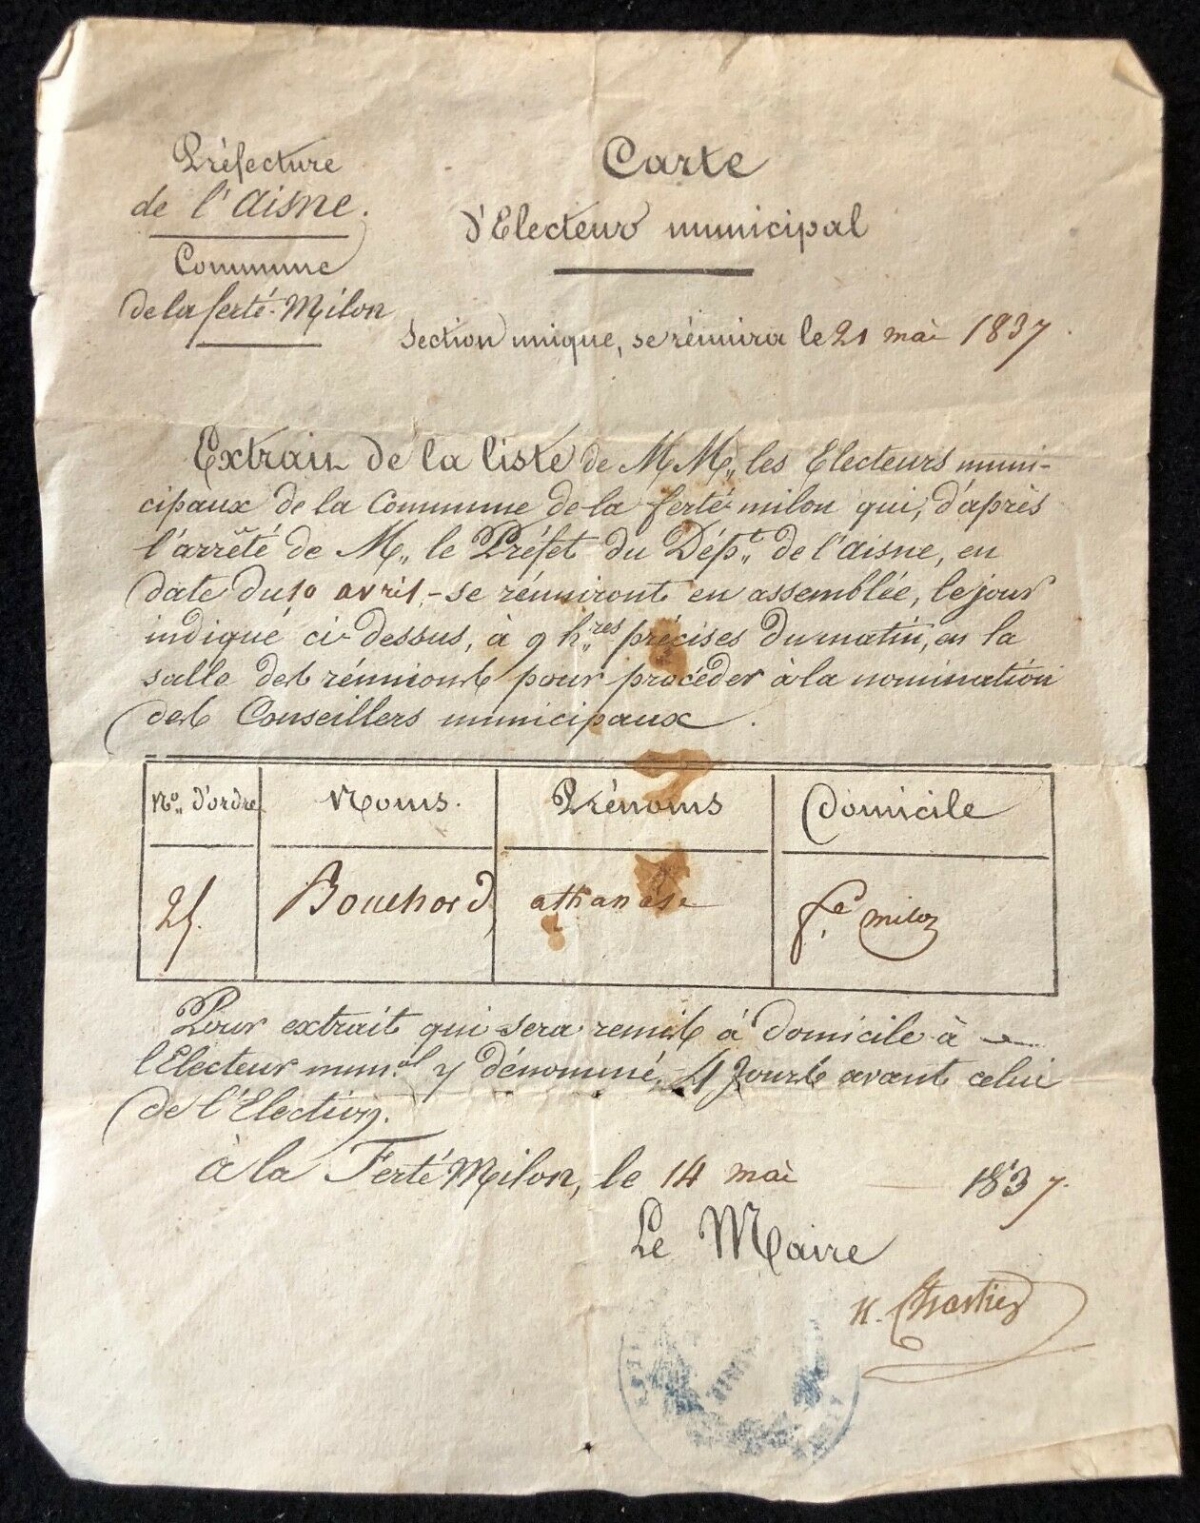 Préfecture
de l'Aisne.
Commune
de la ferté-Milon
Carte
d'Electeur municipal
Section unique, se réunira le 21 mai 1837.
Extrait de la liste de MM,, les Electeurs muni-
cipaux de la Commune de la ferté milon qui, d'après
l'arrêté de M,, le Préfet du Dép.t de l'Aisne, en
date du 10 avril, - se réuniront en assemblée, le jour
indiqué ci-dessus, à 9 h.res précises du matin, en la
salle des réunions pour procéder à la nomination
des Conseillers municipaux.
No,, d'ordre Noms. Prénoms Domicile
25. Bouchard athanase f.té milon
Pour extrait qui sera remis à domicile à
l'Electeur mun.al y dénommé, 4 Jours avant celui
de l'Election.
à la Ferté Milon, le 14 mai 1837.
Le Maire